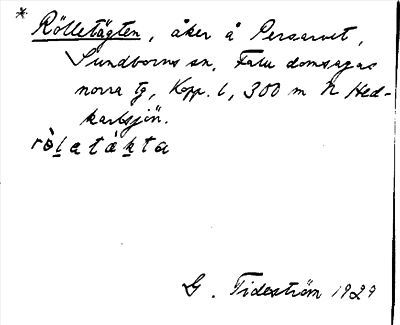 * Rölletägten, åker å Persarvet,
Sundborns sn, Falu domsagas
norra tg, Kopp. l, 300 m N Hed-
karlsjön.
rò̀l̠atäk̠ta
G. Tideström 1929